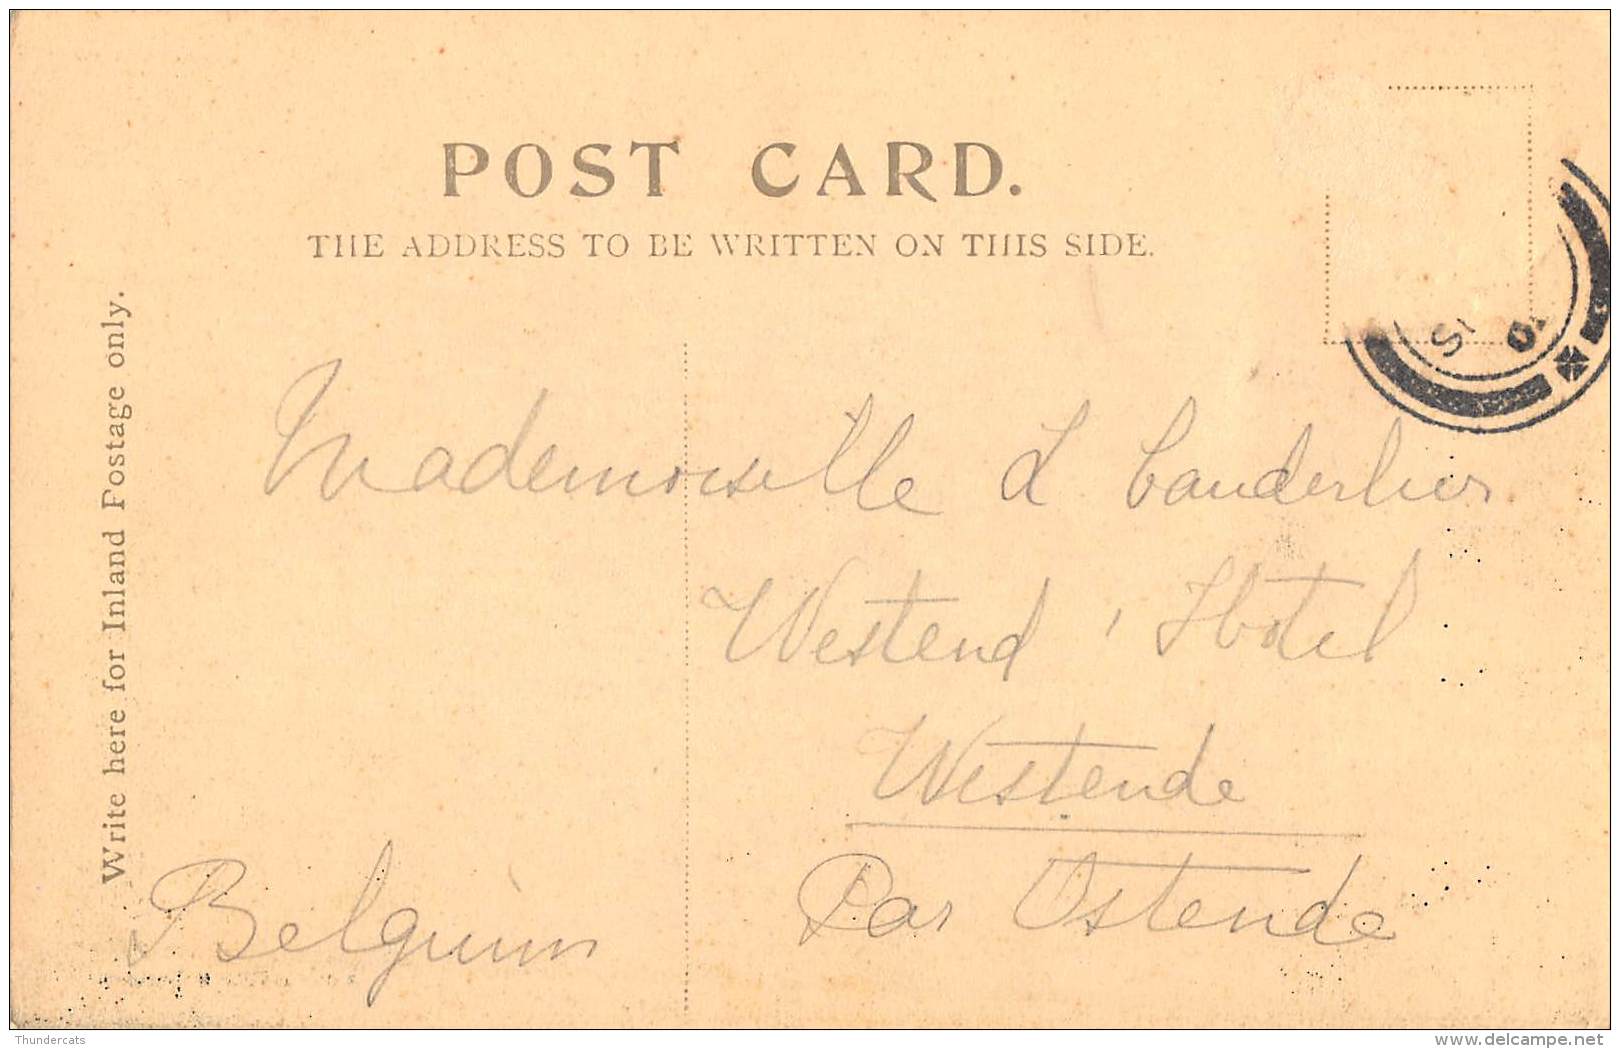 POST CARD.
THE ADDRESS TO BE WRITTEN ON THIS SIDE.
Write here for Inland Postage only.
Mademoiselle L
Westend Hotel
Westende
Par Ostende
Belgium
Thundercats
delcampe.net